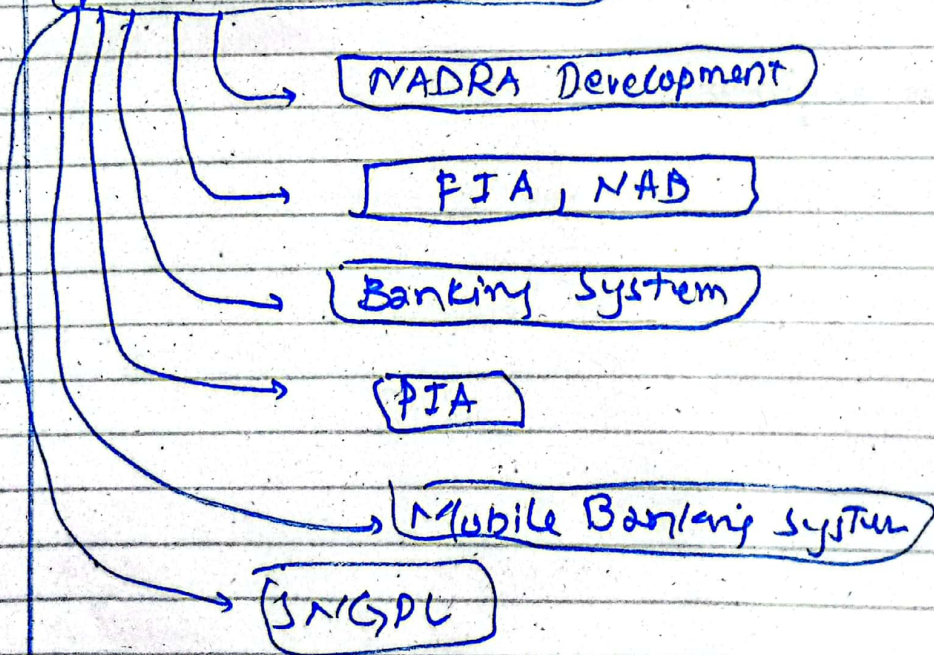 NADRA Development
FIA, NAB
Banking System
PIA
Mobile Banking system
SNGPL